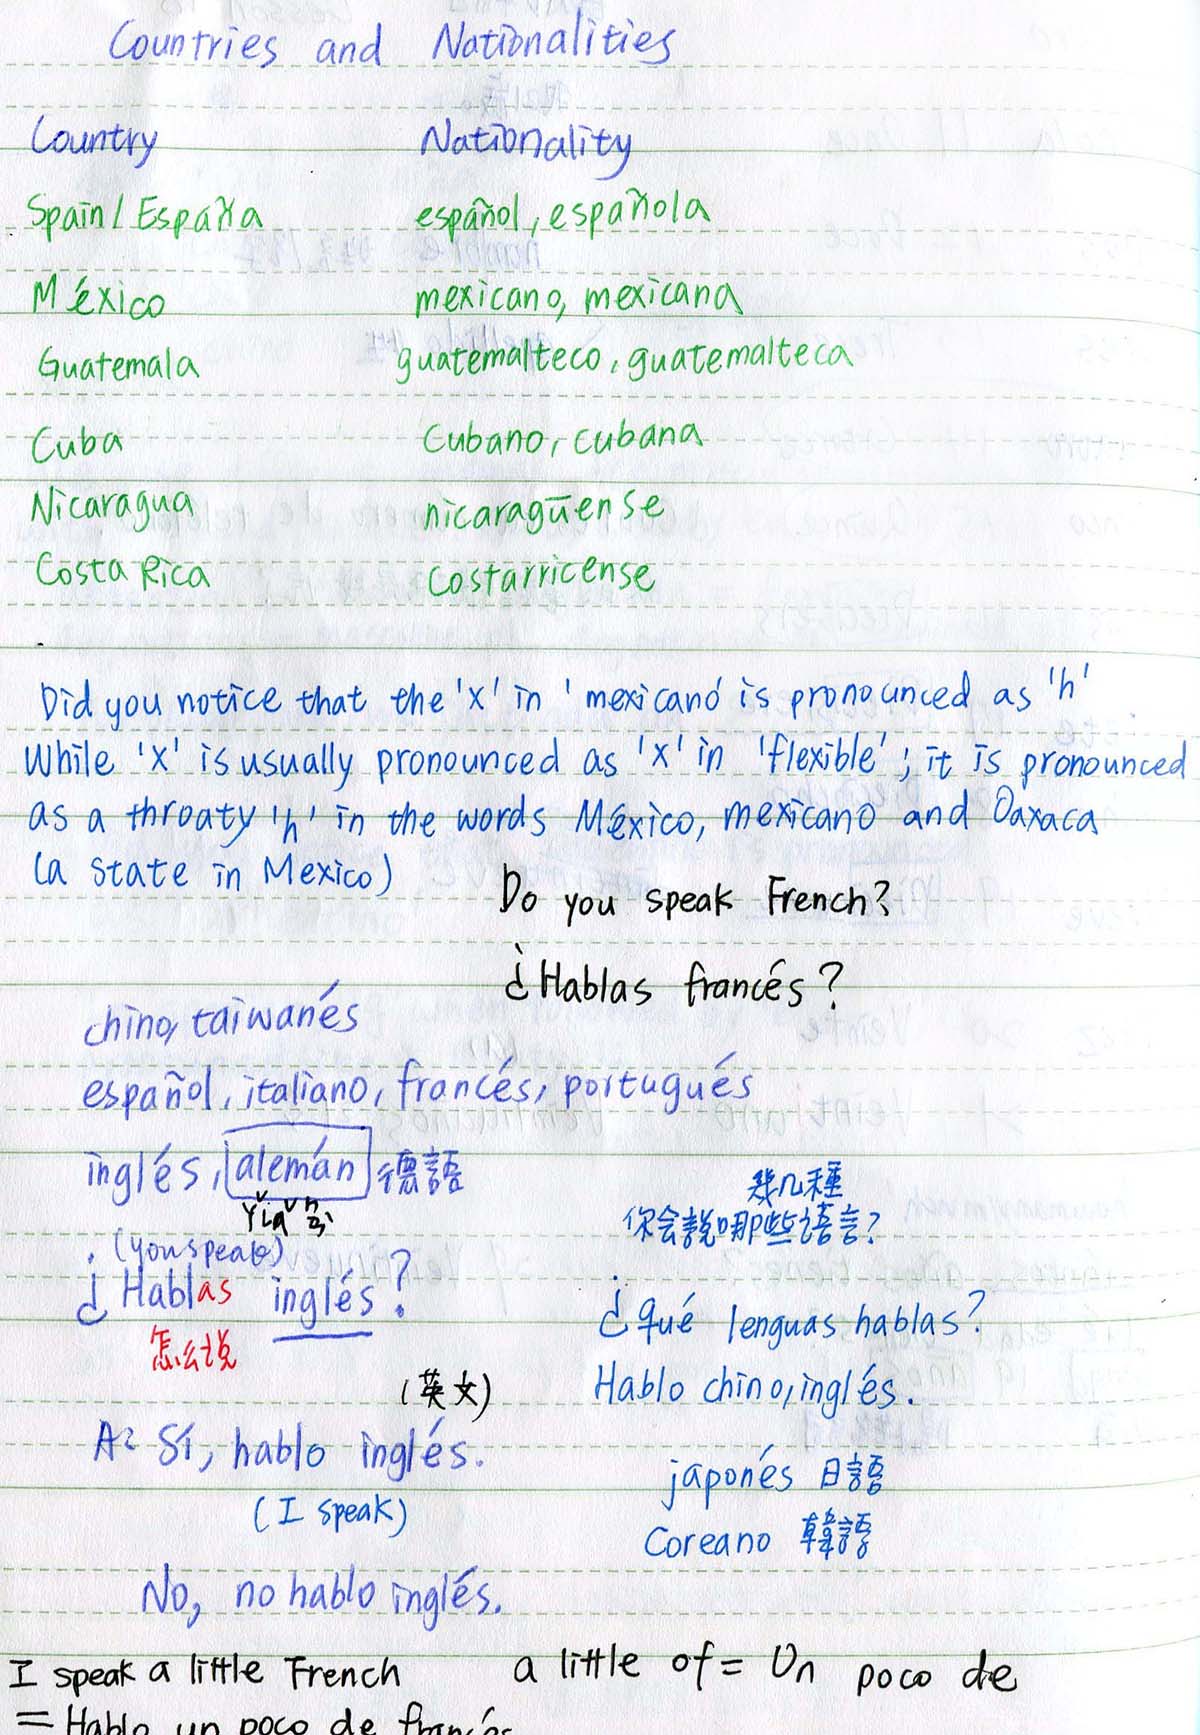 Countries and Nationalities
Country Nationality
Spain/España español, española
México mexicano, mexicana
Guatemala guatemalteco, guatemalteca
Cuba Cubano, cubana
Nicaragua nicaragüense
Costa Rica Costarricense
Did you notice that the 'x' in 'mexicano' is pronounced as 'h'
While 'x' is usually pronounced as 'x' in 'flexible'; it is pronounced
as a throaty 'h' in the words México, mexicano and Oaxaca
(a state in Mexico)
Do you speak French?
¿Hablas francés?
chino, taiwanés
español, italiano, francés, portugués
inglés, alemán 德語
(you speak)
¿Hablas inglés?
怎么说
(英文)
A: Sí, hablo inglés.
(I speak)
No, no hablo inglés.
幾几種
你会說哪些語言?
¿qué lenguas hablas?
Hablo chino, inglés.
japonés 日語
Coreano 韓語
I speak a little French a little of = Un poco de
= Hablo un poco de francés